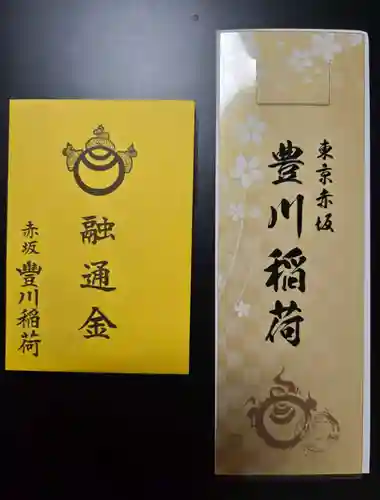 融通金
赤坂 豐川稲荷
東京赤坂
豊川稲荷